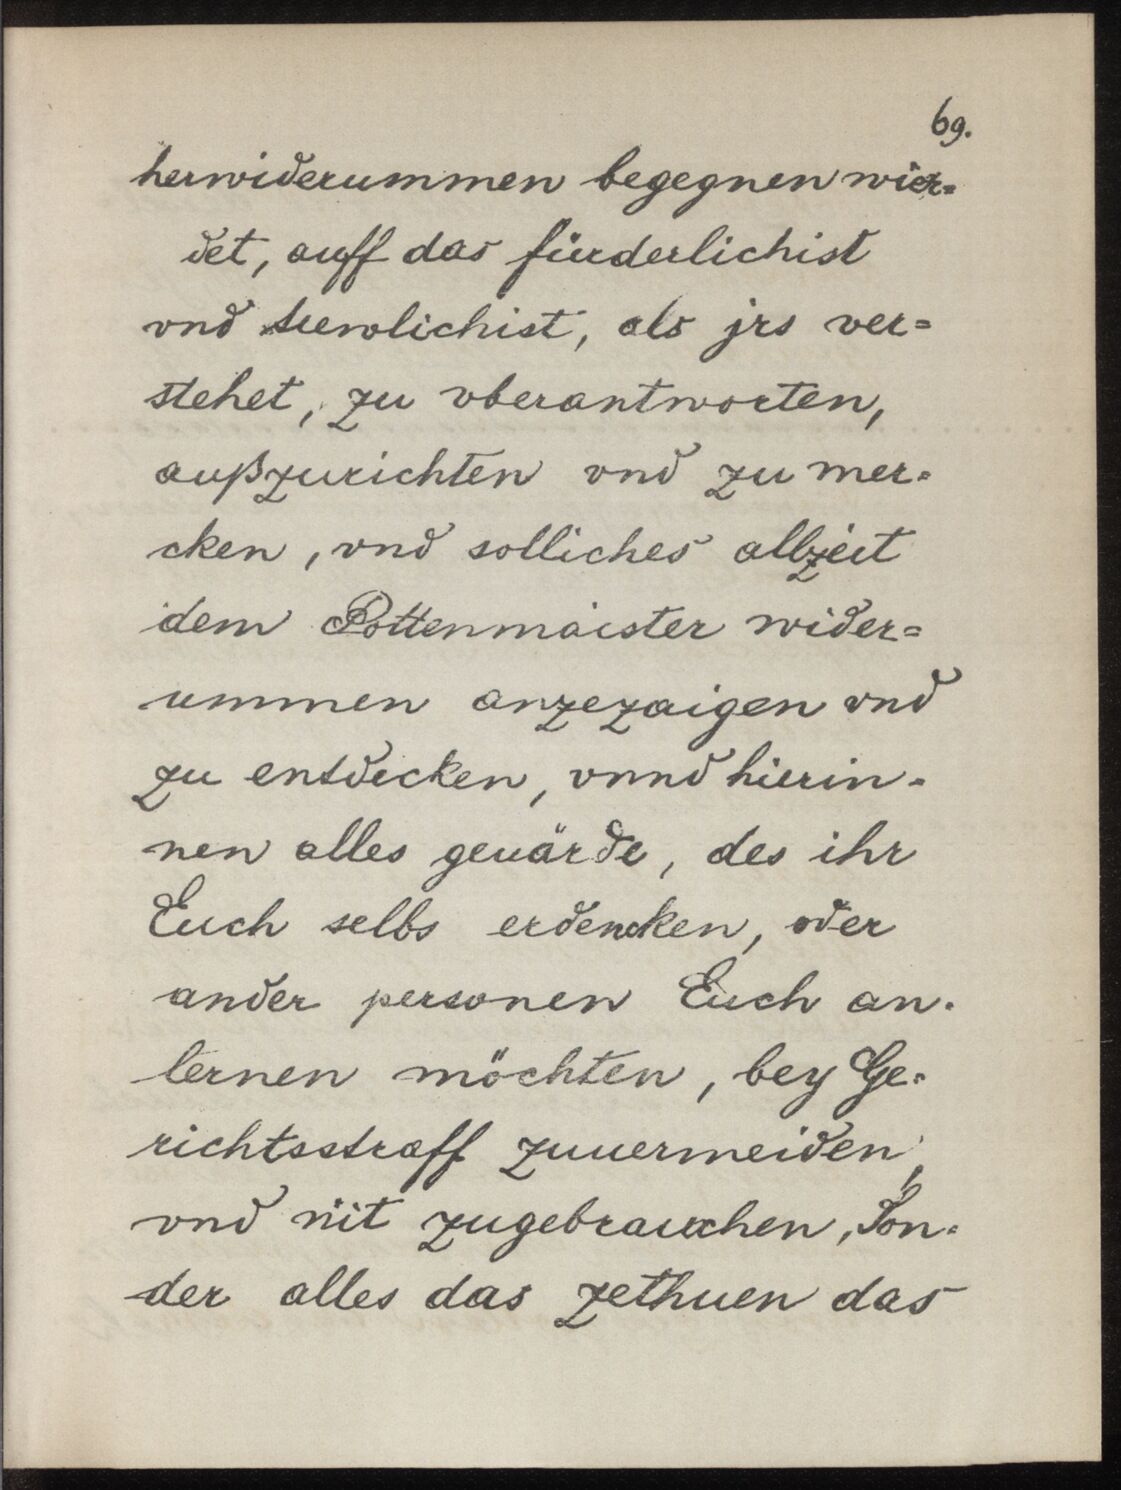 69.
herwiderummen begegnen wier=
det, auff das fürderlichist
vnd trewlichist, als jrs ver=
stehet, zu vberantworten,
außzurichten vnd zu mer=
cken, vnd solliches allzeit
dem Rottenmaister wider=
ummen anzezaigen vnd
zu entdecken, vnnd hierin=
nen alles geuärde, des ihr
Euch selbs erdencken, oder
ander personen Euch an=
lernen möchten, bey Ge=
richtsstraff zuuermeiden,
vnd nit zugebrauchen, Son=
der alles das zethuen das